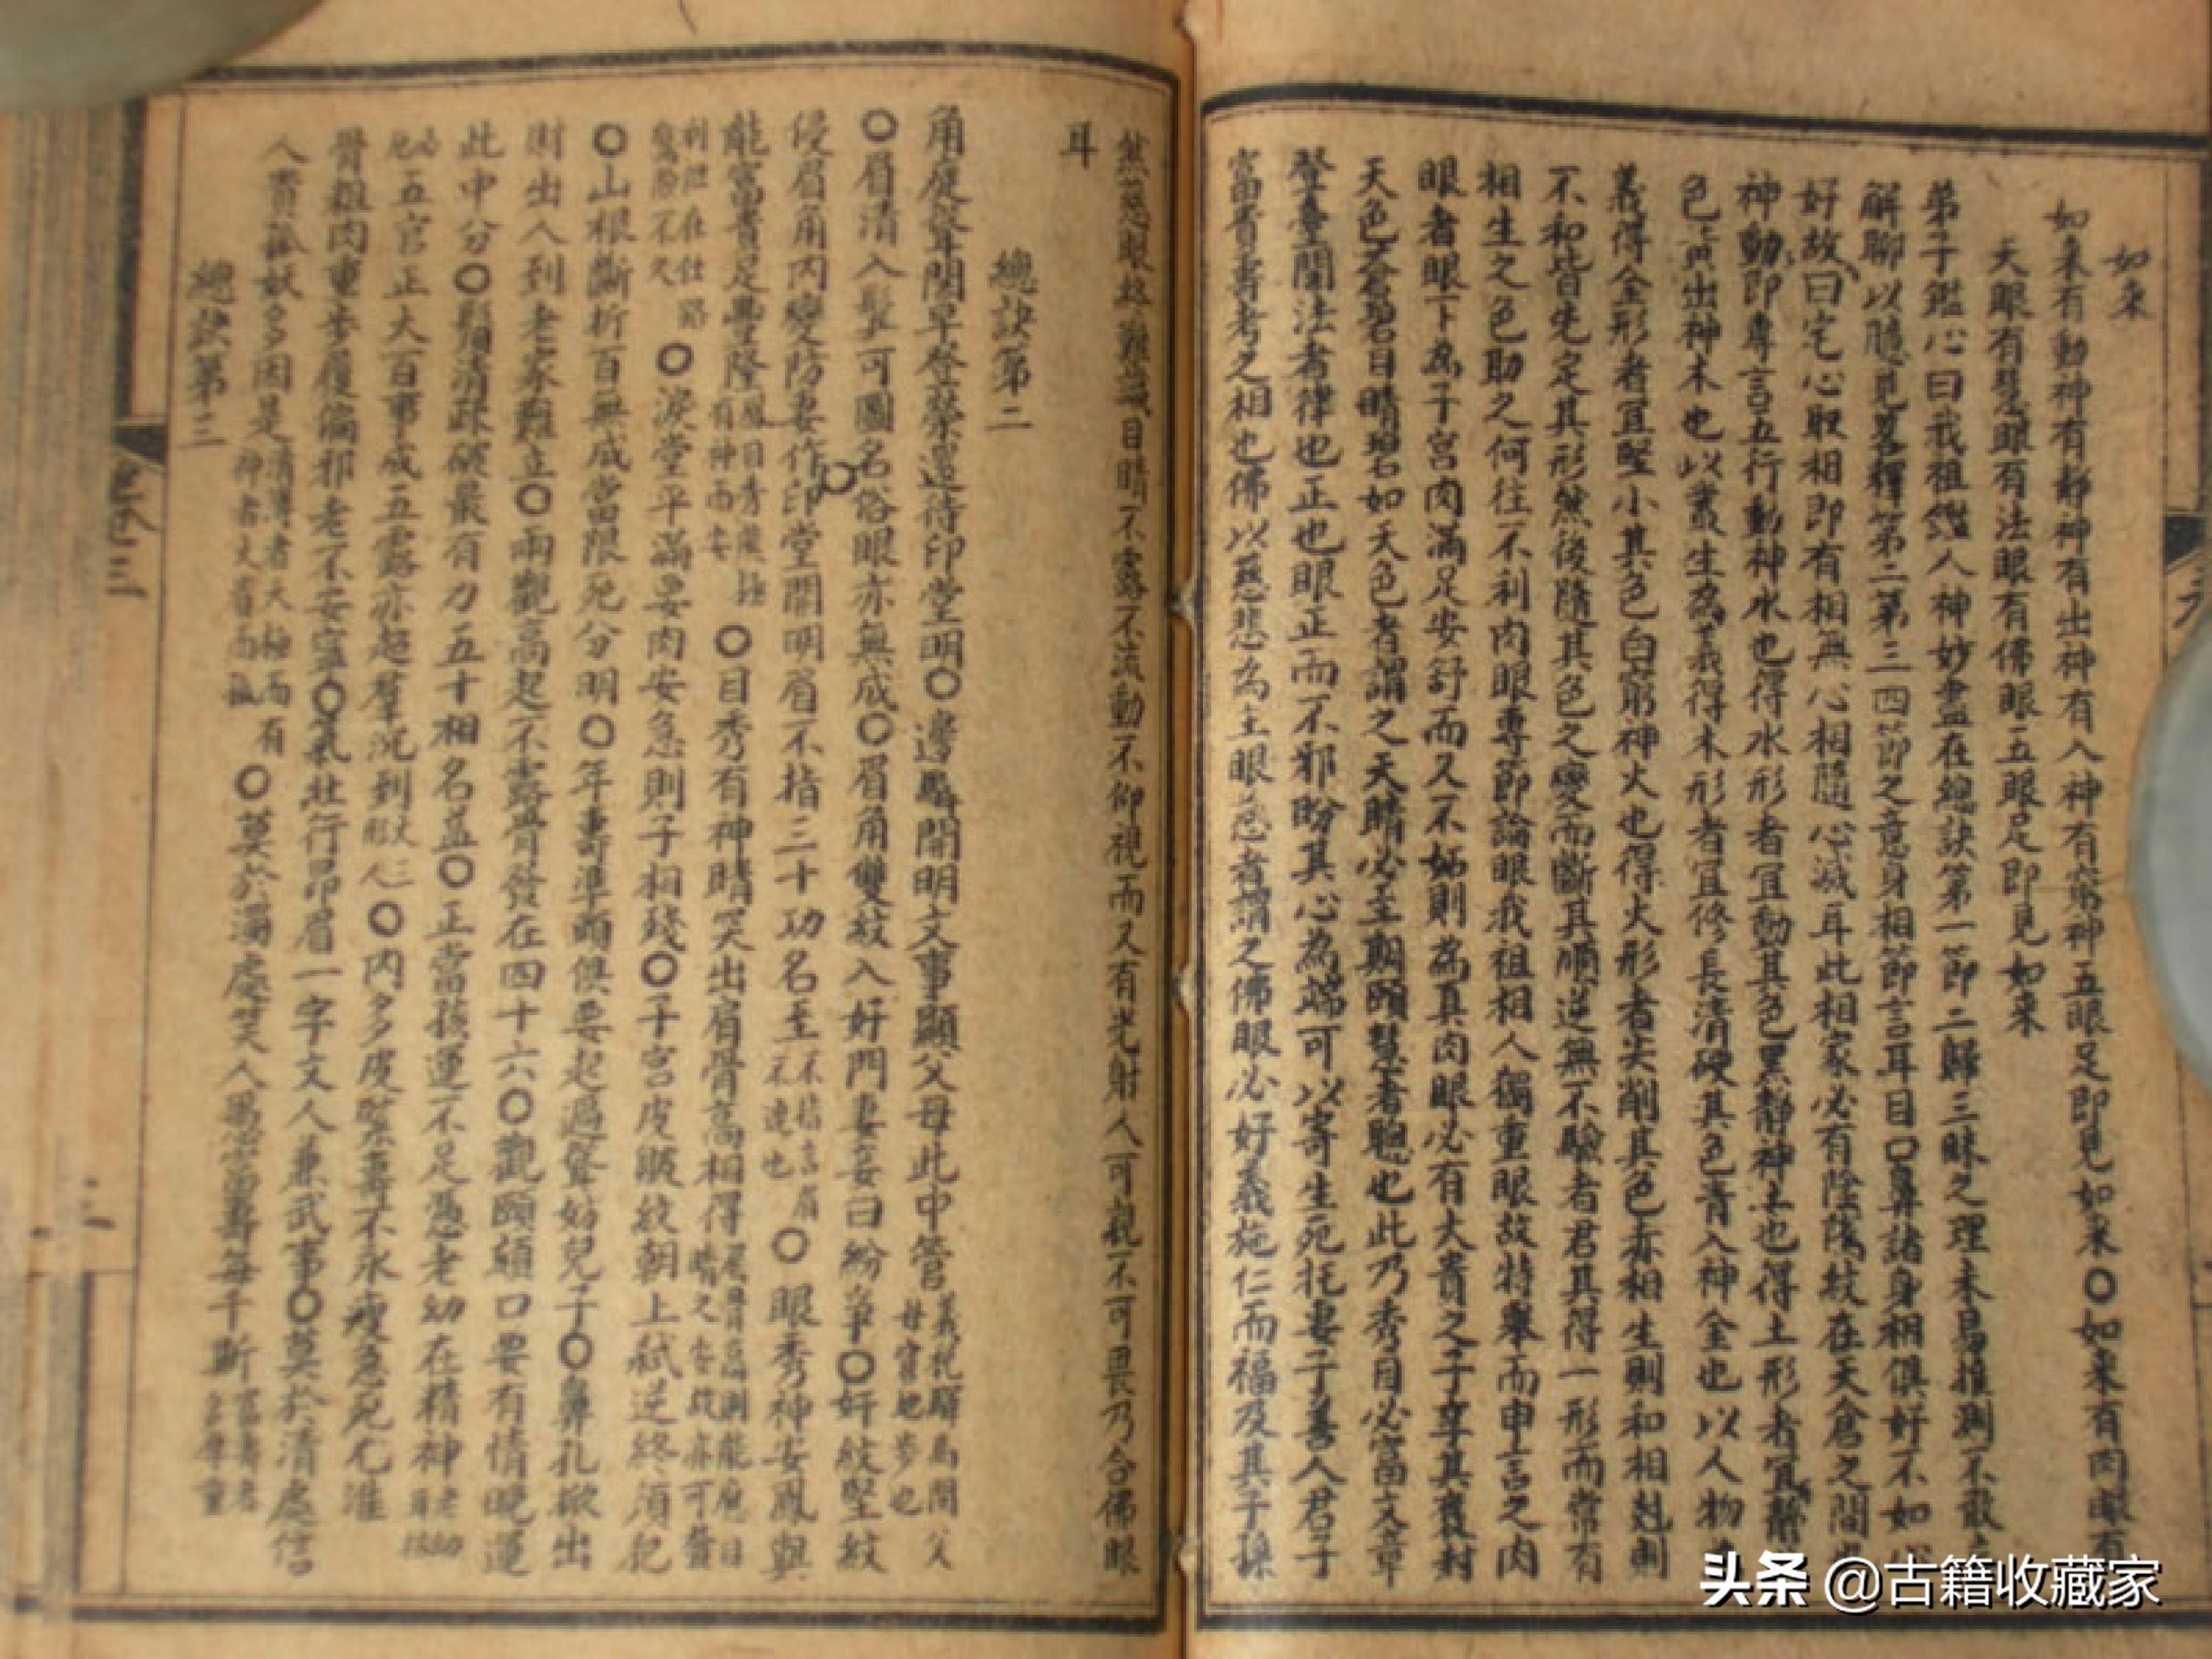 如來
如來有動神有靜神有出神有入神有窮神五眼足即見如來〇如來有肉眼有
天眼有慧眼有法眼有佛眼五眼足即見如來
弟子鑑心曰我祖鑑人神妙盡在總訣第一節二歸三昧之理未易推測不敢
解聊以臆見畧釋第二第三四節之意身相節言耳目口鼻諸身相俱好不如心
好故曰宅心取相即有相無心相隨心滅耳此相家必有陰隲紋在天倉之間
神動即專言五行動神水也得水形者宜動其色黑靜神土也得土形者宜靜
色 出神木也以叢生為義得木形者宜修長清硬其色青入神金也以人物
義得金形者宜堅小其色白窮神火也得火形者尖削其色赤相生則和相尅則
不和皆先定其形然後隨其色之變而斷其順逆無不驗者君其得一形而常有
相生之色助之何往不利肉眼專節論眼我祖相人獨重眼故特舉而申言之肉
眼者眼下為子宮肉滿足安舒而又不妬則為真肉眼必有大貴之子享其褒封
天色蒼碧目睛碧如天色者謂之天睛必至期頤慧者聰也此乃秀目必富文章
登臺閣法者律也正也眼正而不邪盼其心為端可以寄生死托妻子善人君子
富貴壽考之相也佛以慈悲為主眼慈者謂之佛眼必好義施仁而福及其子孫
然慈眼最難識目睛不露不流動不仰視而又有光射人可親不可畏乃合佛眼
耳
總訣第二
角庭聳闊早登榮還待印堂明〇邊驛開明文事顯父母此中管
〇眉清入鬢可圖名俗眼亦無成〇眉角雙紋入奸門妻妾日紛爭〇奸紋堅紋
侵眉角內變防妻作印堂開明眉不指三十功名至不指言眉不連也〇眼秀神安鳳與
龍富貴足豐隆〇目秀有神睛突出肩骨高相得
〇淚堂平滿要肉安急則子相殘〇子宮皮皺紋朝上弒逆終須犯
〇山根斷折百無成當限死分明〇年壽準頭俱要起過聳妨兒子〇鼻孔掀出
財出入到老家難立〇兩觀高起不露骨發在四十六〇觀頤頦口要有情晚運
此中分〇鬚清疎破最有力五十相名益〇正當孩運不足憑老幼在精神
五官正大百事成五露亦超羣 〇內多皮緊壽不永瘦急死尤准
骨粗肉重步履偏邪老不安寧〇氣壯行昂眉一字文人兼武事〇莫於清處信
人貴孤妖多因是 〇莫於濁處笑人愚富壽每千斯
總訣第三
卷三
頭条 @古籍收藏家